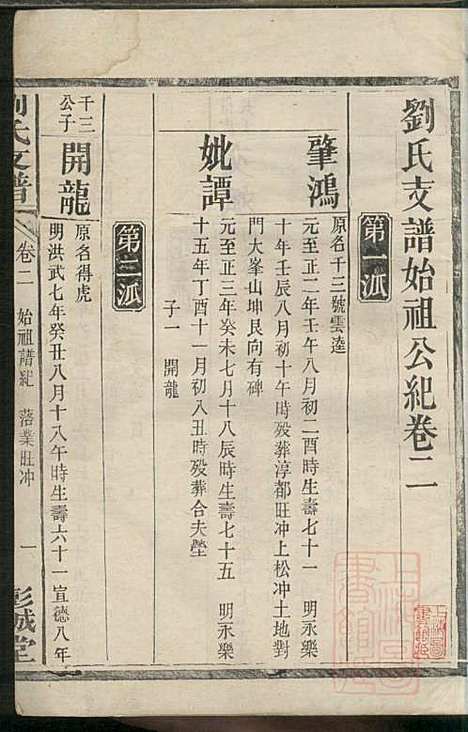 劉氏支譜始祖公紀卷二
第一派
肇鴻
原名千三號雲逵
元至正二年壬午八月初二酉時生壽七十一　明永樂
十年壬辰八月初十午時殁葬淳都旺冲上松冲土地對
門大峯山坤艮向有碑
妣譚
元至正三年癸未七月十八辰時生壽七十五　明永樂
十五年丁酉十一月初八丑時殁葬合夫塋
子一　開龍
第二派
千三公子
開龍
原名得虎
明洪武七年癸丑八月十八午時生壽六十一宣德八年
劉氏支譜
卷二　始祖譜紀　落業旺冲
一
彭城堂